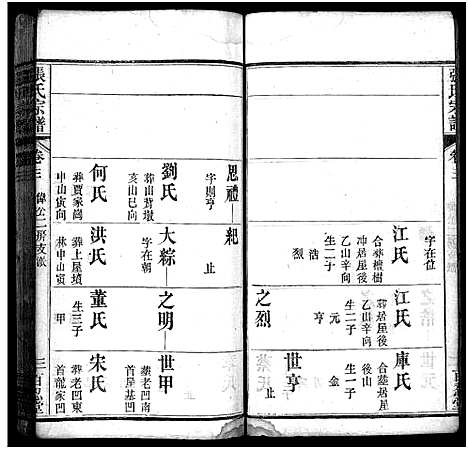 張氏宗譜
卷三
字在位
江氏
合葬檀樹
冲居屋後
乙山辛向
生二子
浩
烈
江氏
葬居屋後
乙山辛向
生二子
元
亨
庫氏
合葬居屋
後山
生一子
金
之烈
世亨
止
恩禮
字則亨
紀
止
劉氏
葬山背墩
亥山巳向
大綜
字在朝
之明
世甲
葬老凹南
首岸基凹
何氏
葬賈家崗
申山寅向
洪氏
葬上屋墳
林申山寅
董氏
生三子
甲
宋氏
葬老凹東
首龍家凹
張氏宗譜
卷三
二房支派
三
百忍堂